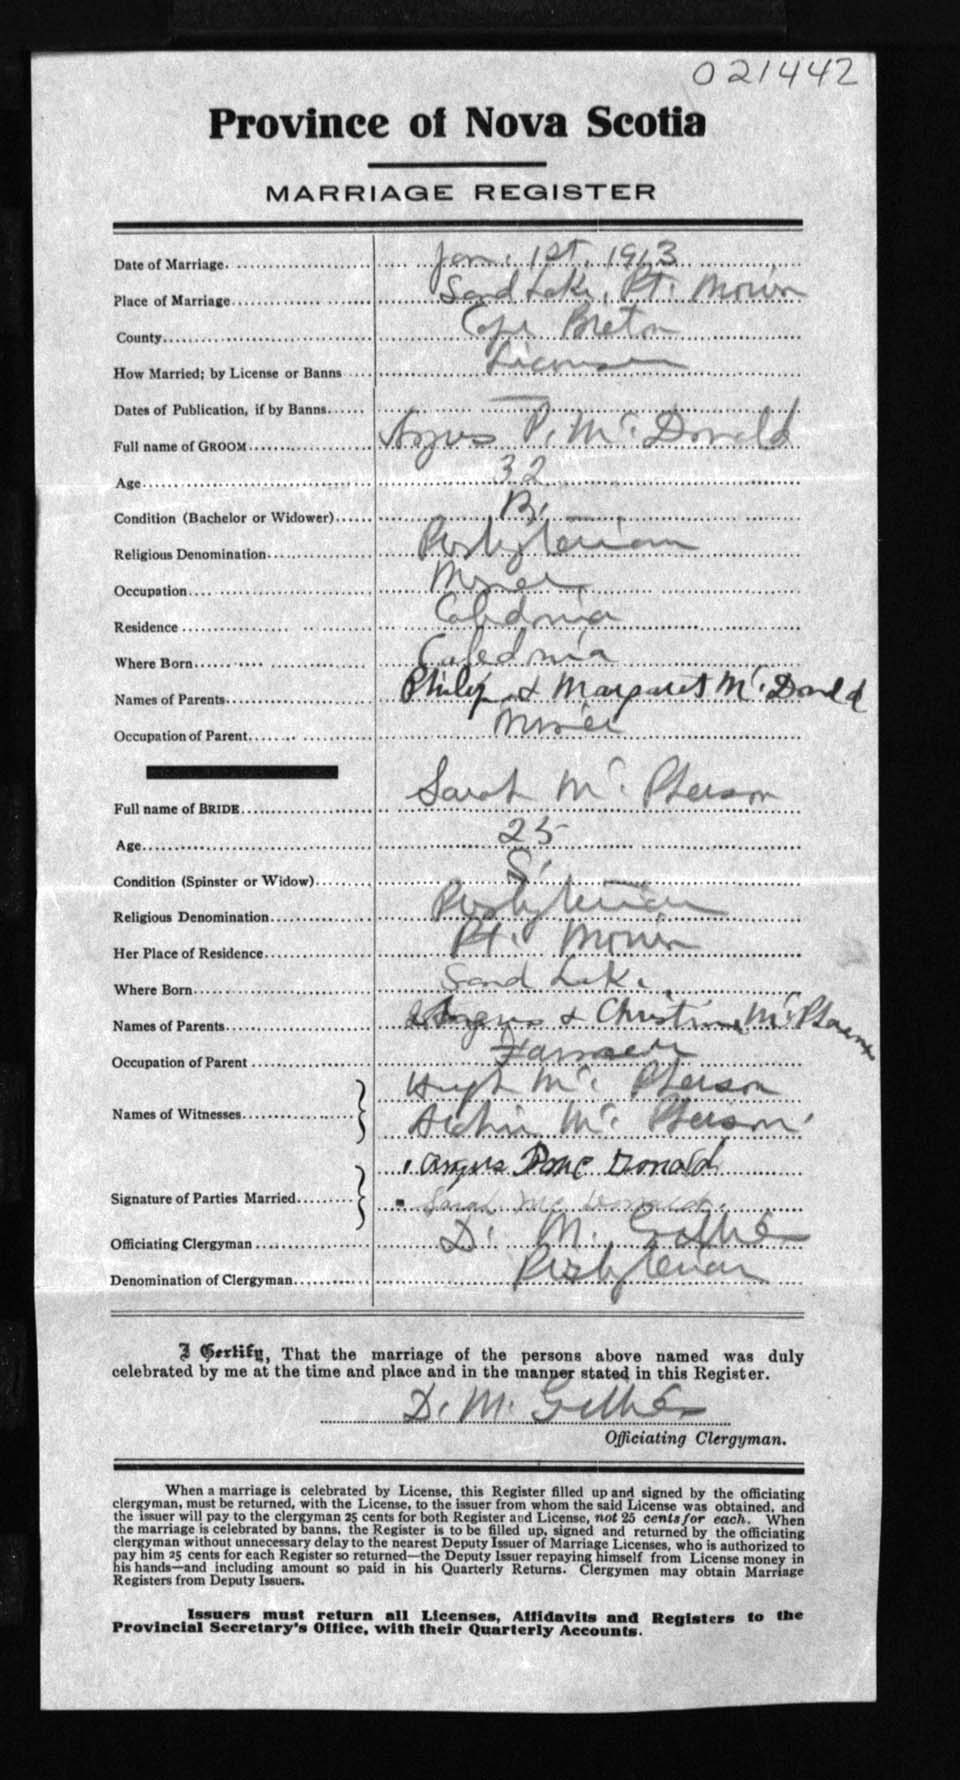 021442
Province of Nova Scotia
MARRIAGE REGISTER
Date of Marriage. Jan. 1st. 1913
Place of Marriage Sand Lake, Pt. Morien
County Cape Breton
How Married; by License or Banns License
Dates of Publication, if by Banns —
Full name of GROOM Angus P. Mc. Donald
Age 32
Condition (Bachelor or Widower) B.
Religious Denomination Presbyterian
Occupation Miner
Residence Caledonia
Where Born Caledonia
Names of Parents Philip & Margaret Mc. Donald
Occupation of Parent Miner
Full name of BRIDE Sarah Mc. Pherson
Age 25
Condition (Spinster or Widow) S.
Religious Denomination Presbyterian
Her Place of Residence Pt. Morien
Where Born Sand Lake
Names of Parents Angus & Christina Mc. Pherson
Occupation of Parent Farmer
Hugh Mc. Pherson
Names of Witnesses
Archie Mc. Pherson
Angus P Mc Donald
Signature of Parties Married
Sarah Mc Donald
Officiating Clergyman D. M. Gillies
Denomination of Clergyman Presbyterian
I Certify, That the marriage of the persons above named was duly
celebrated by me at the time and place and in the manner stated in this Register.
D. M. Gillies
Officiating Clergyman.
When a marriage is celebrated by License, this Register filled up and signed by the officiating
clergyman, must be returned, with the License, to the issuer from whom the said License was obtained, and
the issuer will pay to the clergyman 25 cents for both Register and License, not 25 cents for each. When
the marriage is celebrated by banns, the Register is to be filled up, signed and returned by the officiating
clergyman without unnecessary delay to the nearest Deputy Issuer of Marriage Licenses, who is authorized to
pay him 25 cents for each Register so returned—the Deputy Issuer repaying himself from License money in
his hands—and including amount so paid in his Quarterly Returns. Clergymen may obtain Marriage
Registers from Deputy Issuers.
Issuers must return all Licenses, Affidavits and Registers to the
Provincial Secretary's Office, with their Quarterly Accounts.